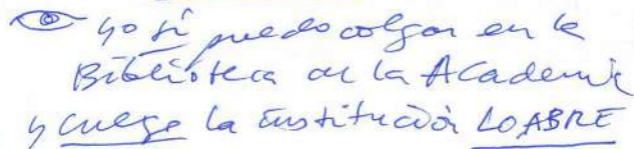 yo sí puedo colgar en la
Biblioteca de la Academia
y cuelga la institución LO ABRE